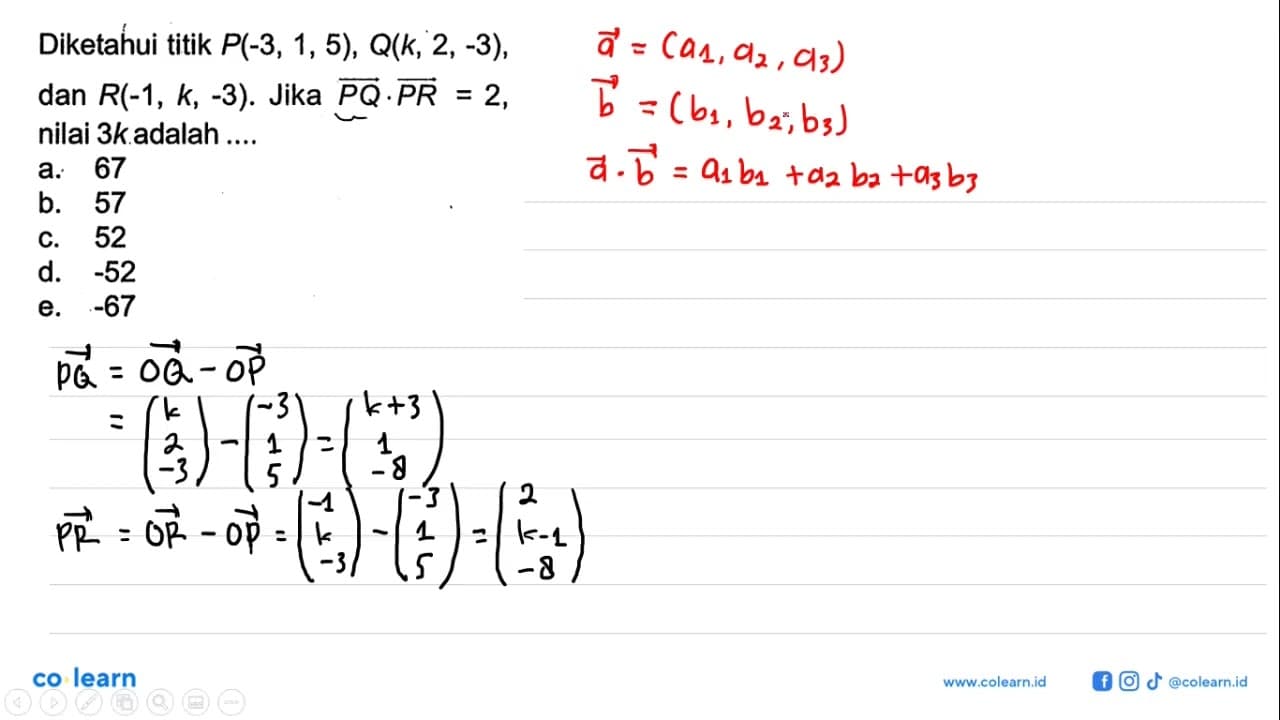 Diketahui titik P(-3, 1, 5), Q(k, 2, -3),
dan R(-1, k, -3). Jika PQ · PR = 2,
nilai 3k adalah ....
a. 67
b. 57
c. 52
d. -52
e. -67
a = (a1, a2, a3)
b = (b1, b2, b3)
a · b = a1b1 + a2b2 + a3b3
PQ = OQ - OP
= (k 2 -3) - (-3 1 5) = (k+3 1 -8)
PR = OR - OP = (-1 k -3) - (-3 1 5) = (2 k-1 -8)
co learn
www.colearn.id
@colearn.id